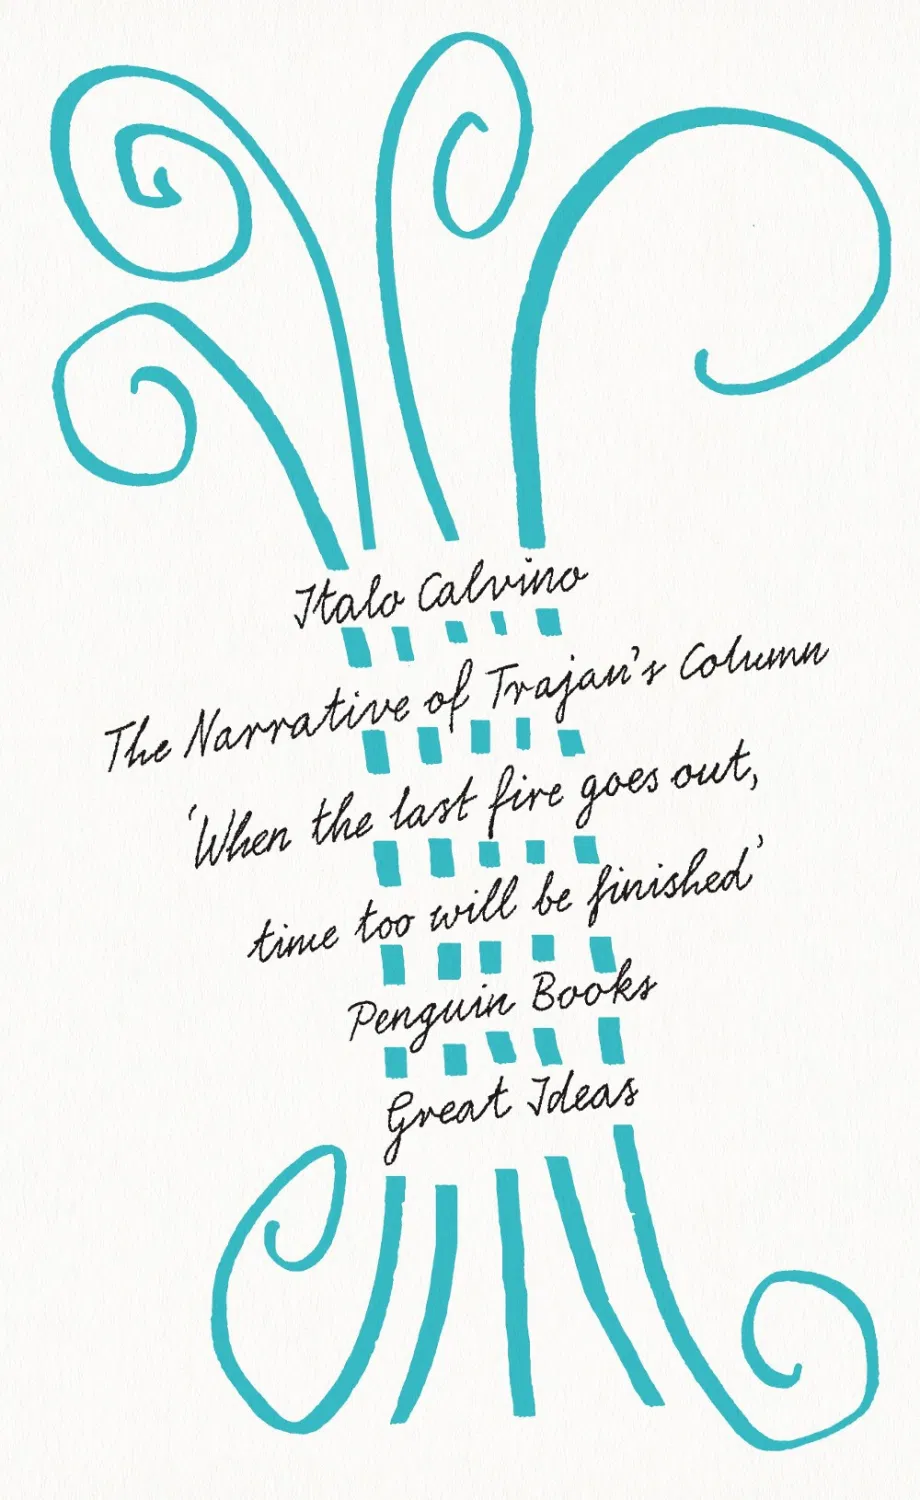 Italo Calvino
The Narrative of Trajan's Column
'When the last fire goes out,
time too will be finished'
Penguin Books
Great Ideas